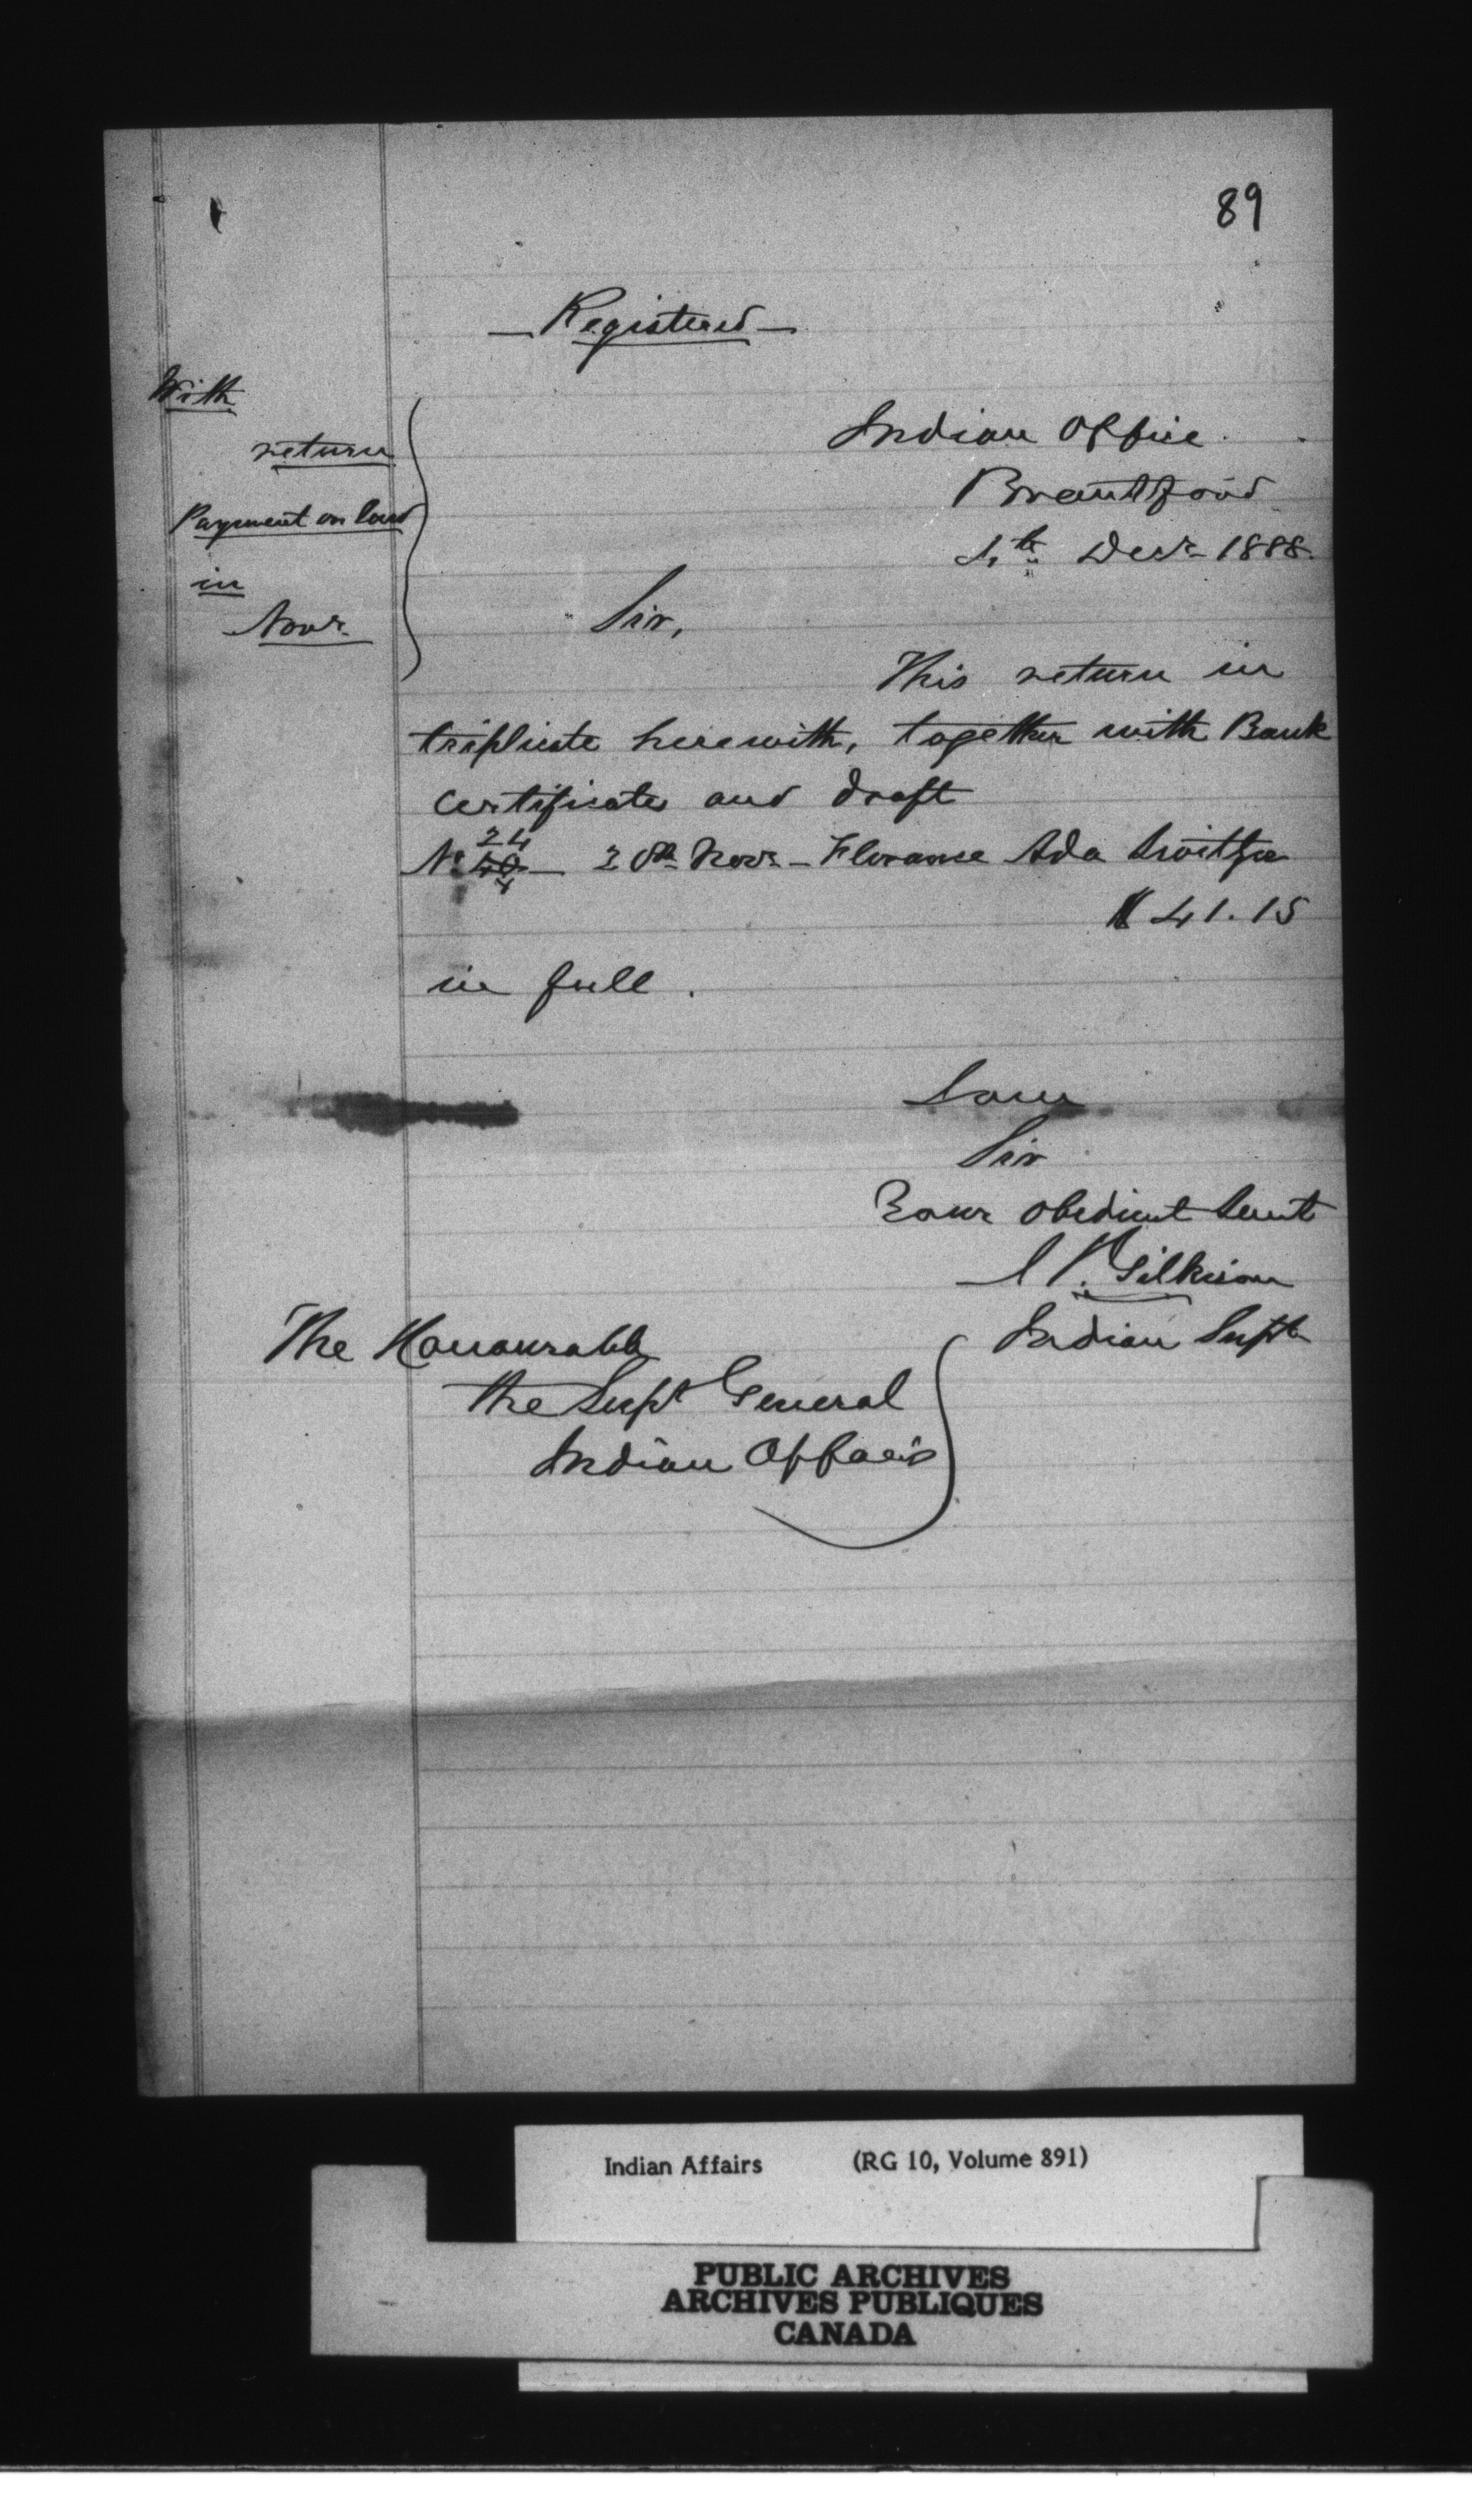 89
Registered
With
return
Payment on land
in
Novr
Indian Office
Brantford
4th Decr 1888.
Sir,
This return in
triplicate herewith, together with Bank
certificates and draft
24
No 20th Novr - Florance Ada
$41.15
in full.
I am
Sir
Your obedient Servt
Gilkison
Indian Supt
The Honourable
the Supt General
Indian Affairs
Indian Affairs (RG 10, Volume 891)
PUBLIC ARCHIVES
ARCHIVES PUBLIQUES
CANADA